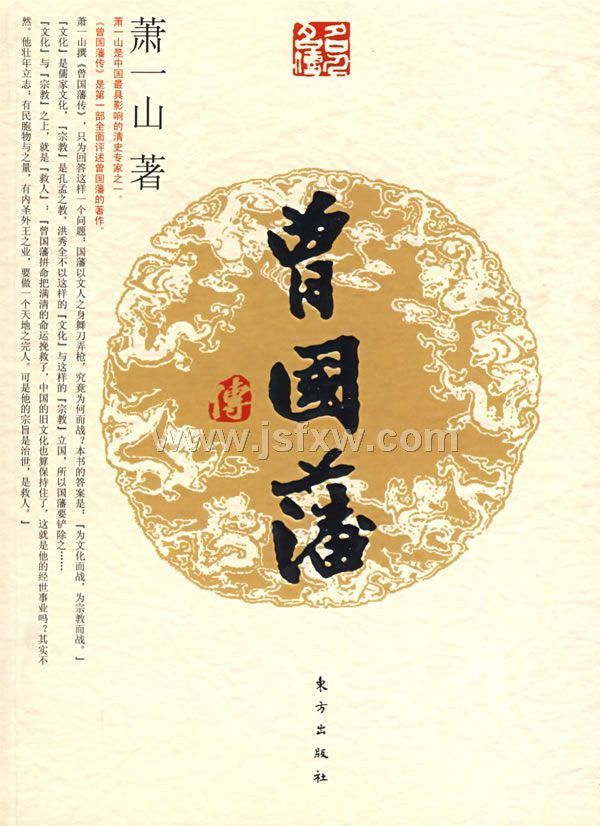 萧一山 著
萧一山是中国最具影响的清史专家之一。
《曾国藩传》是第一部全面评述曾国藩的著作。
萧一山撰《曾国藩传》，只为回答这样一个问题：国藩以文人之身舞刀弄枪，究竟为何而战？本书的答案是：『为文化而战，为宗教而战。』
『文化』是儒家文化，『宗教』是孔孟之教。洪秀全不以这样的『文化』与这样的『宗教』立国，所以国藩要铲除之……
『文化』与『宗教』之上，就是『救人』：『曾国藩拼命把满清的命运挽救了，中国的旧文化也算保持住了，这就是他的经世事业吗？其实不
然。他壮年立志：有民胞物与之量，有内圣外王之业，要做一个天地之完人。可是他的宗旨是治世，是救人。』
曾国藩
傳
www.jsfxw.com
東方出版社